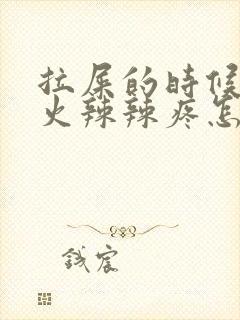 拉屎的时候
火辣辣疼怎
钱宸